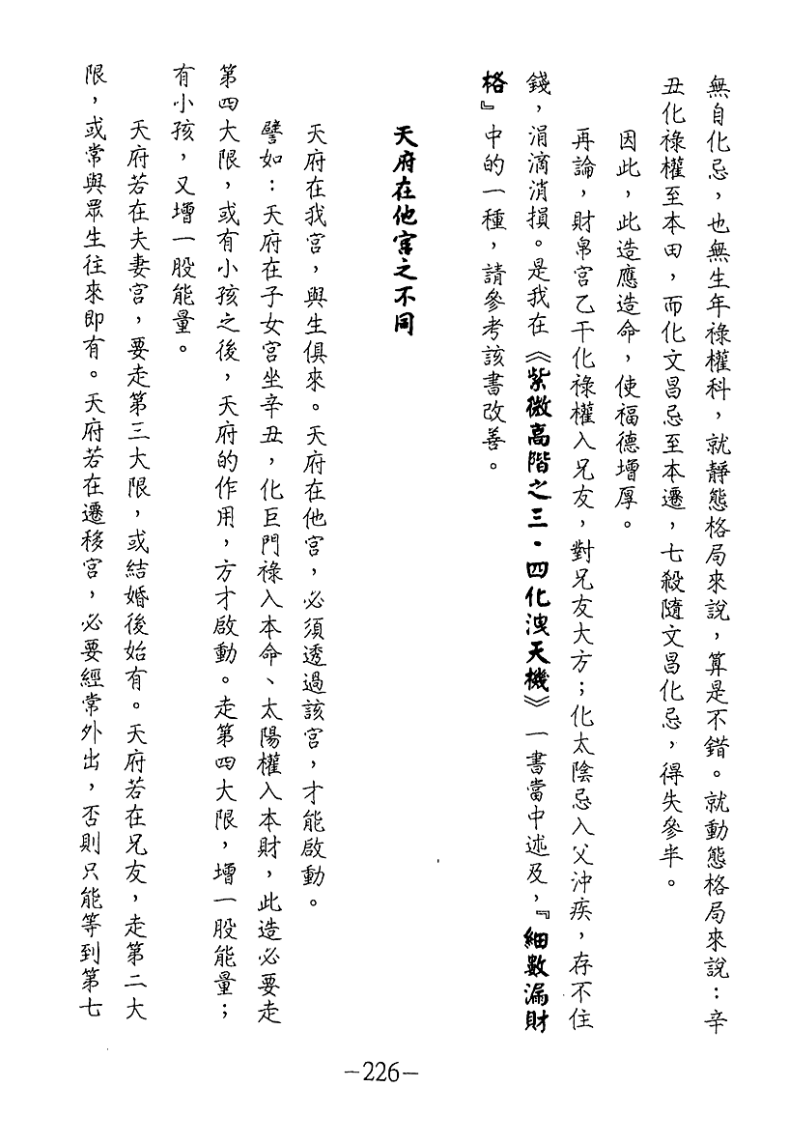 無自化忌，也無生年祿權科，就靜態格局來說，算是不錯。就動態格局來說：辛
丑化祿權至本田，而化文昌忌至本遷，七殺隨文昌化忌，得失參半。
因此，此造應造命，使福德增厚。
再論，財帛宮乙干化祿權入兄友，對兄友大方；化太陰忌入父沖疾，存不住
錢，涓滴消損。是我在《紫微高階之三．四化洩天機》一書當中述及，『細數漏財
格』中的一種，請參考該書改善。
天府在他宮之不同
天府在我宮，與生俱來。天府在他宮，必須透過該宮，才能啟動。
譬如：天府在子女宮坐辛丑，化巨門祿入本命、太陽權入本財，此造必要走
第四大限，或有小孩之後，天府的作用，方才啟動。走第四大限，增一股能量；
有小孩，又增一股能量。
天府若在夫妻宮，要走第三大限，或結婚後始有。天府若在兄友，走第二大
限，或常與眾生往來即有。天府若在遷移宮，必要經常外出，否則只能等到第七
-226-